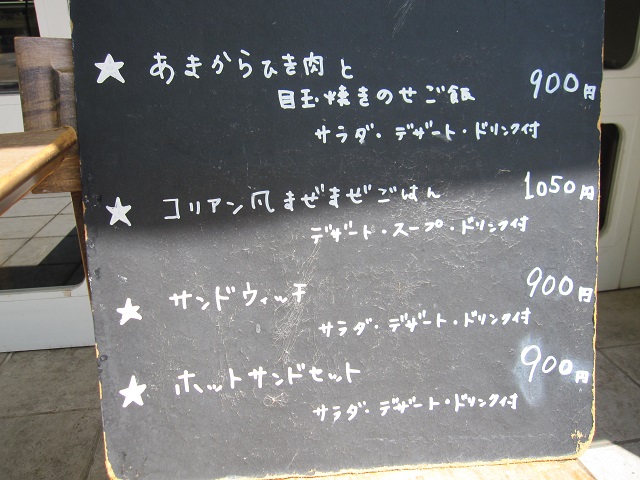 ★ あまからひき肉と
目玉焼きのせご飯 900円
サラダ・デザート・ドリンク付
★ コリアン風まぜまぜごはん 1050円
デザート・スープ・ドリンク付
★ サンドウィッチ 900円
サラダ・デザート・ドリンク付
★ ホットサンドセット 900円
サラダ・デザート・ドリンク付